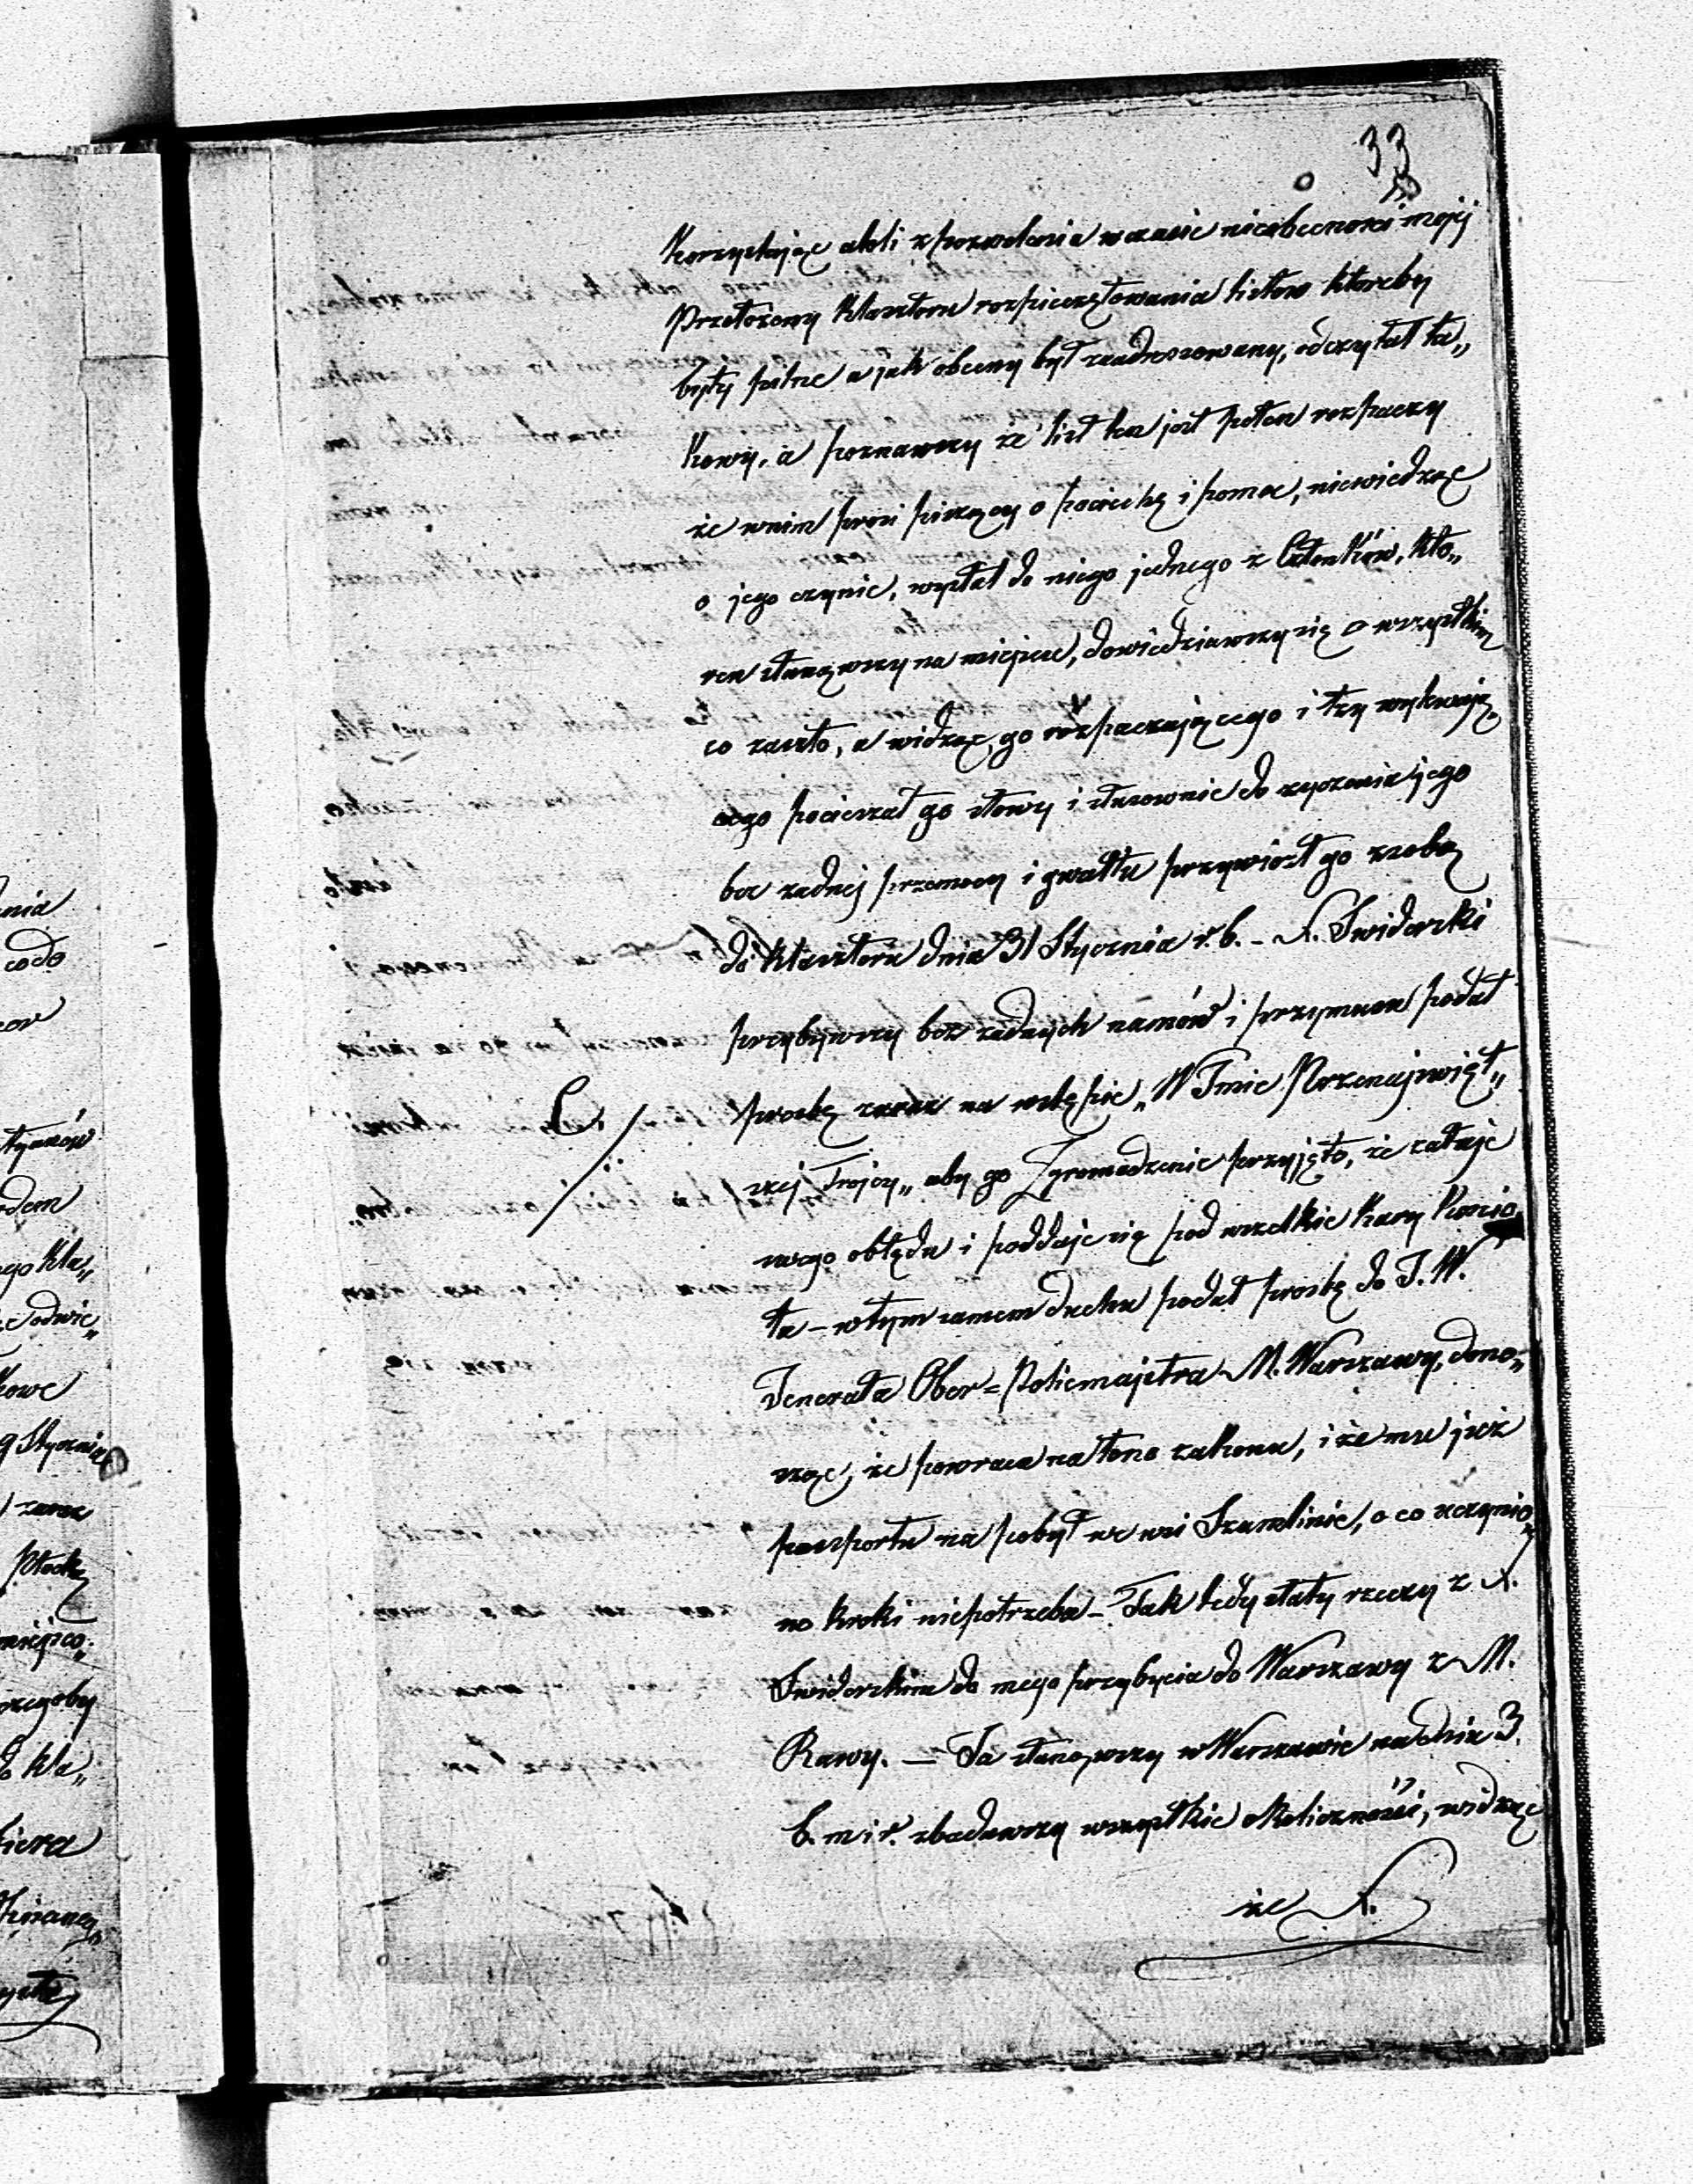 33
Korzystając atoli z pozwolenia w czasie nieobecności mojej
Przełożony Klasztoru rozpieczętowania listów któreby
były pilne a jak obecny był zaadresowany, odczytał ta„
kowy, a poznawszy że list ten jest pełen rozpaczy
że wnim prosi piszący o pociechę i pomoc, niewiedząc
o jego czynie, wysłał do niego jednego z Członków, któ„
ren stanąwszy na miejscu, dowiedziawszy się o wszystkim
co zaszło, a widząc go rozpaczającego i łzy
cego pocieszał go słowy i stosownie do życzenia jego
bez żadnej przemocy i gwałtu przywiózł go z sobą
do Klasztoru dnia 31 Stycznia r. b. – X. Swiderski
przybywszy bez żadnych namów i przymusu podał
prośbę zaraz na wstępie „W Imie Przenajświęt„
szej Trojcy„ aby go Zgromadzenie przyjęło, że żałuje
swego obłędu i poddaje się pod wszelkie kary Kościo
ła – w tym samem duchu podał prośbę do J. W.
Jenerała Ober=Policmajstra M. Warszawy, dono„
sząc, że powraca na łono zakonu, i że mu już
paszportu na pobyt we wsi Szamlinie, o co uczynio„
no kroki niepotrzeba – Tak tedy stały rzeczy z X.
Swiderskim do mego przybycia do Warszawy z M.
Rawy. — Ja stanąwszy w Warszawie na dnia 3.
b. m i r. zbadawszy wszystkie okoliczności, widząc
że X.
nia
codo
tynaów
dem
go Kla„
odwie„
kowe
9 Stycznia
zaraz
Płocką
miejsco„
czegoby
do Kla„